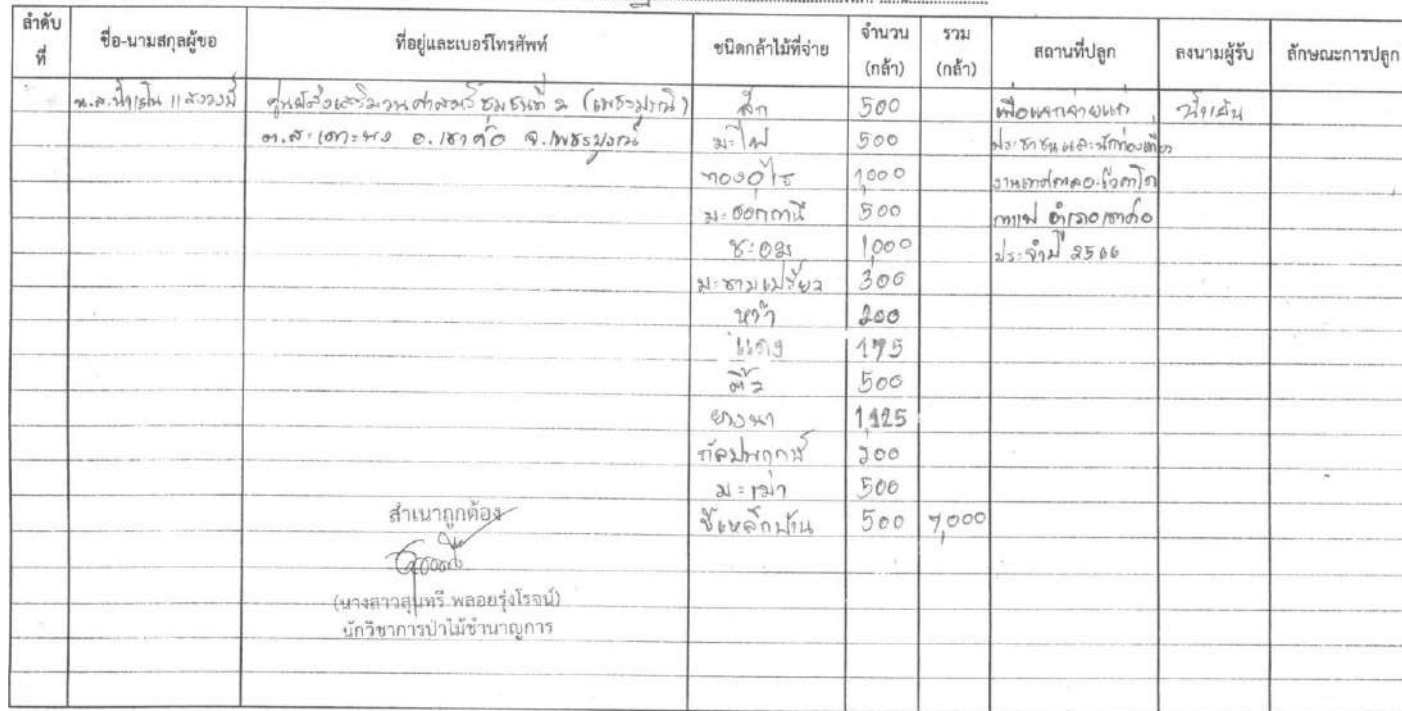 ลำดับ ที่ ชื่อ-นามสกุลผู้ขอ ที่อยู่และเบอร์โทรศัพท์ ชนิดกล้าไม้ที่จ่าย จำนวน (กล้า) รวม (กล้า) สถานที่ปลูก ลงนามผู้รับ ลักษณะการปลูก
น.ส.น้ำเย็น ศูนย์ส่งเสริมวนศาสตร์ชุมชนที่ 2 (เพชรบูรณ์) สัก 500 เพื่อแจกจ่ายแก่ น้ำเย็น
ต.สะเดาะพง อ.เขาค้อ จ.เพชรบูรณ์ มะไฟ 500 ประชาชนและนักท่องเที่ยว
ทองอุไร 1,000 งานเทศกาลอะโวคาโด
มะฮอกกานี 500 กาแฟ อำเภอเขาค้อ
ชะอม 1,000 ประจำปี 2566
มะขามเปรี้ยว 300
หว้า 200
แดง 175
ติ้ว 500
ยางนา 1,125
กัลปพฤกษ์ 200
มะเม่า 500
ขี้เหล็กบ้าน 500 7,000
สำเนาถูกต้อง
(นางสาวสุนทรี พลอยรุ่งโรจน์)
นักวิชาการป่าไม้ชำนาญการ